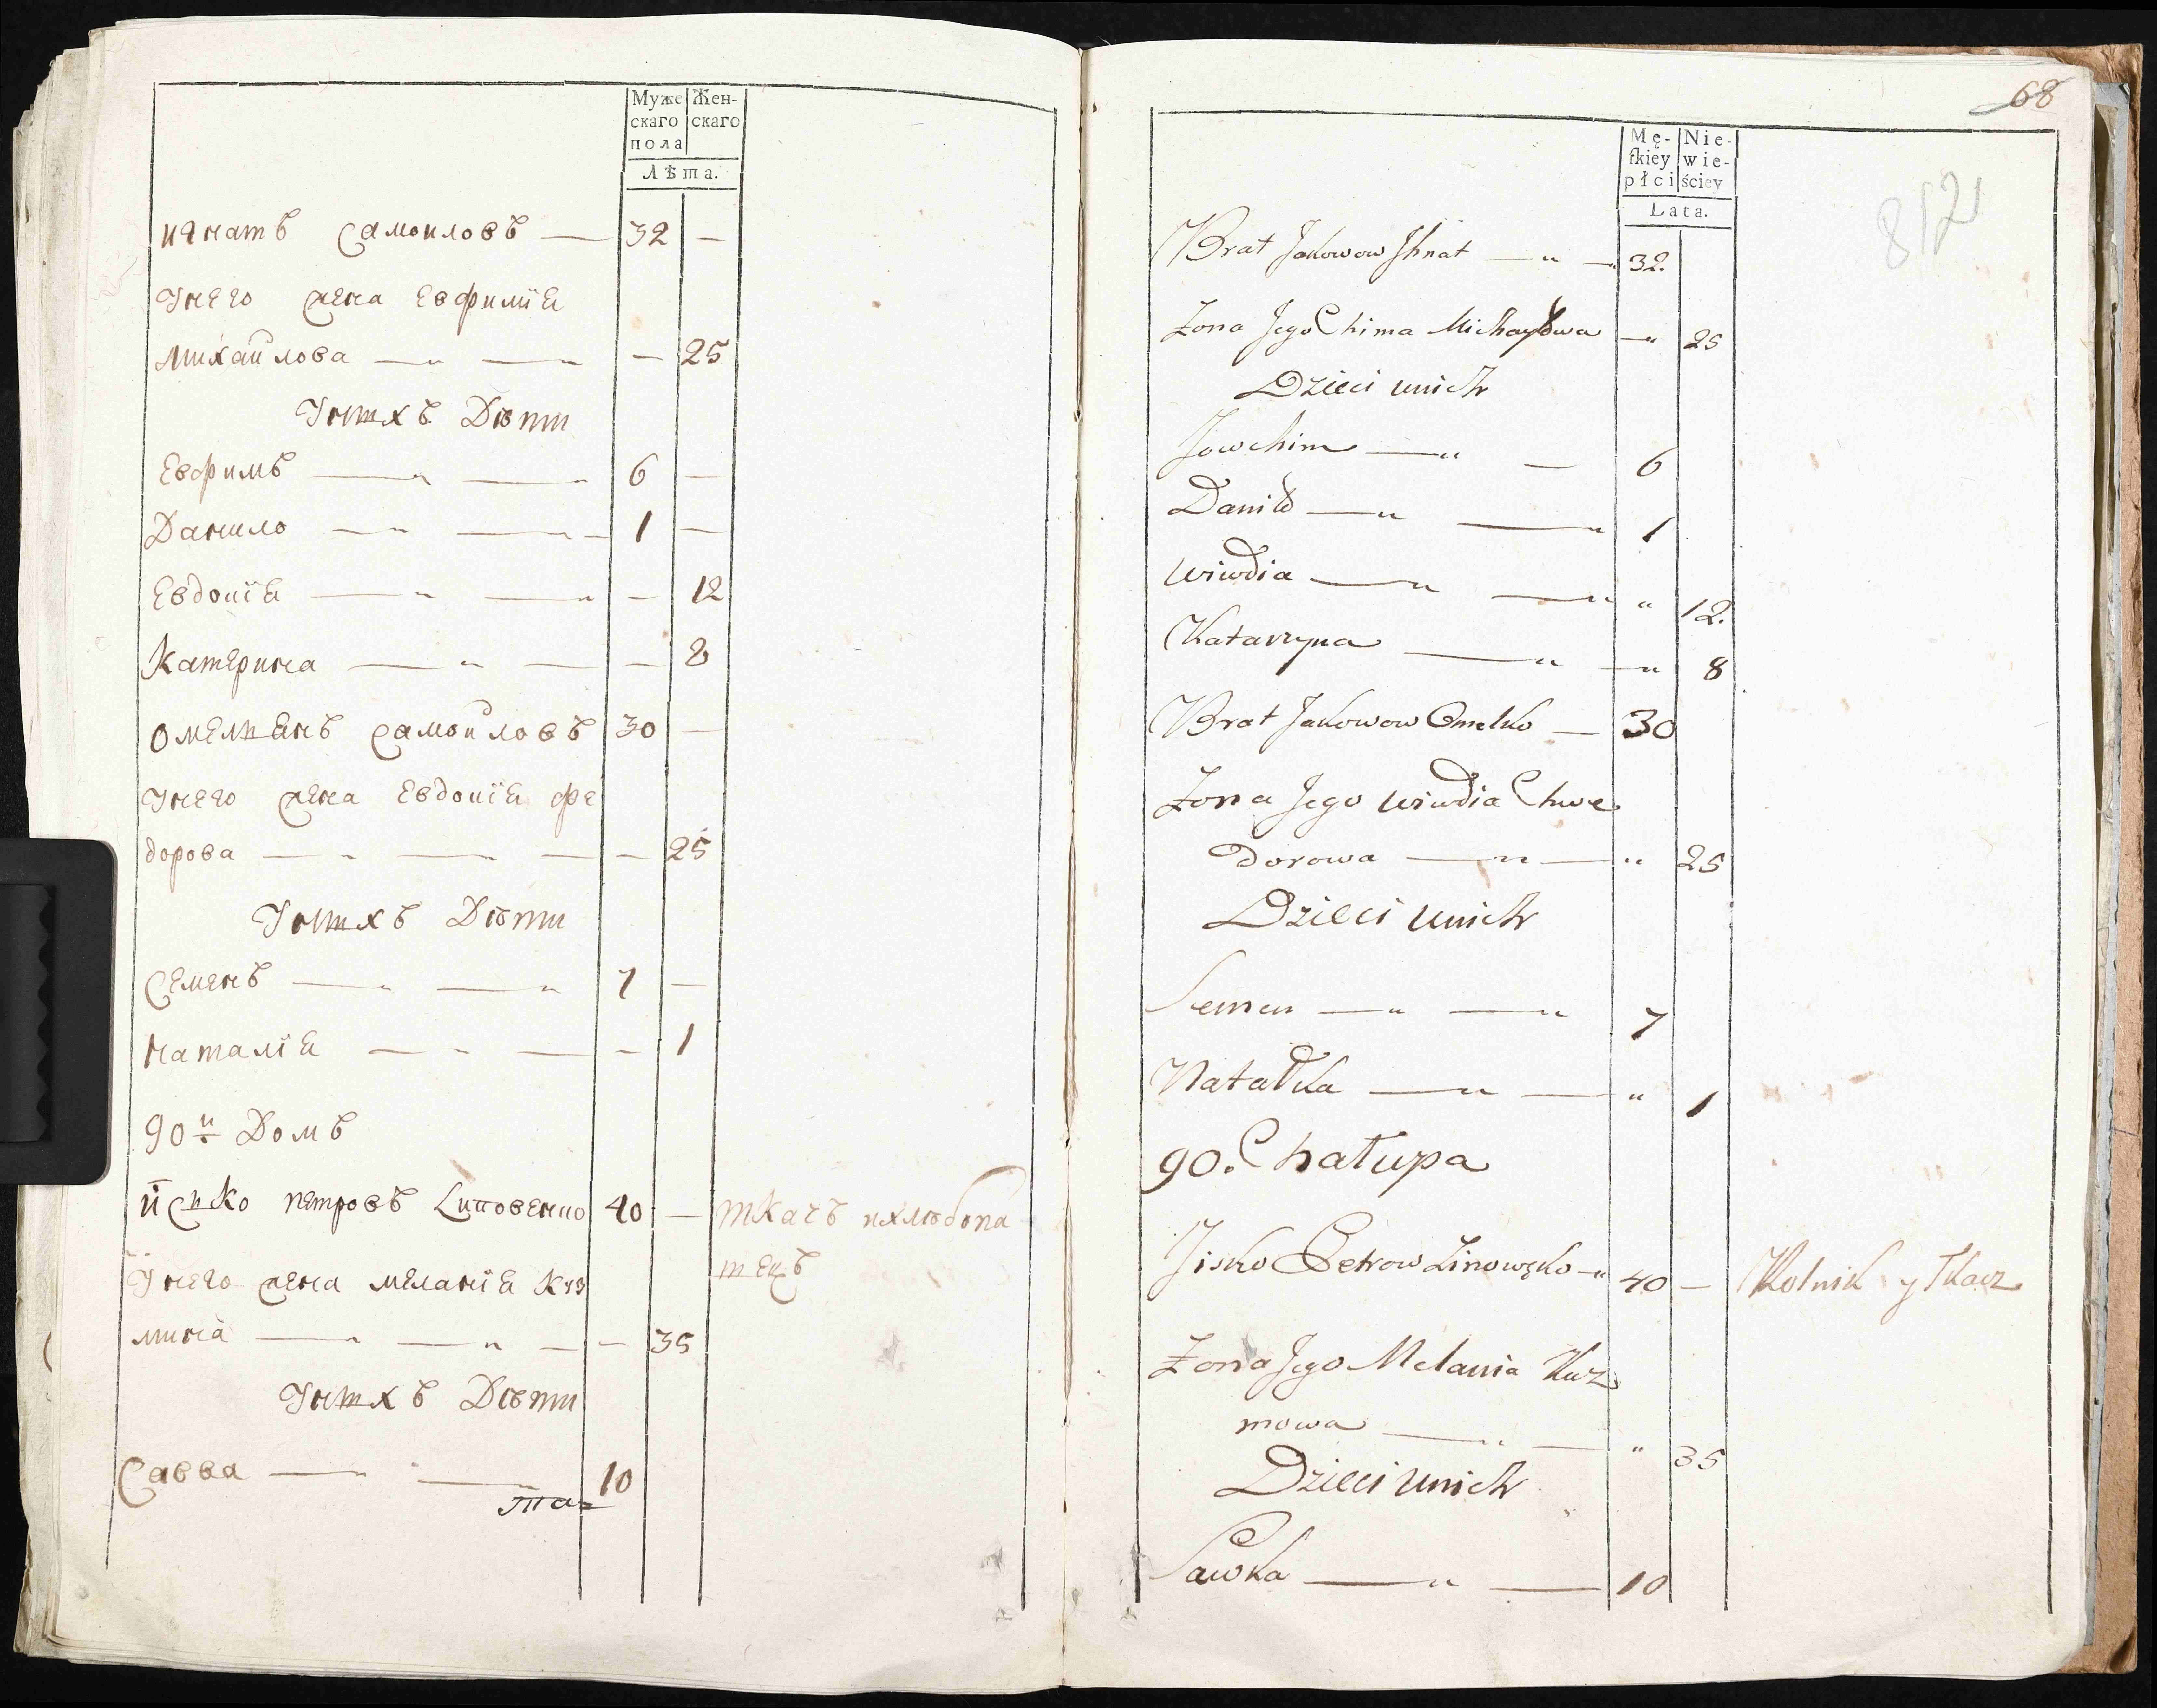 Муже
скаго
пола
Жен-
скаго
Лѣта.
игнатъ самоиловъ — 32 —
Унего жена Евфимїя
михайлова — „ — — 25
Унихъ Дѣти
Евфимъ — „ — 6 —
Данило — „ — 1 —
Евдокїя — „ — „ — 12
Катерина — „ — — 8
омелиянъ самойловъ 30 —
Унего жена Евдокїя фе
дорова — „ — „ — — 25
Унихъ Дѣти
Семенъ — „ — „ 7 —
наталїя — „ — — 1
90й Домъ
петровъ 40 — ткачъ ихлѣбопа
тецъ
Унего жена меланїя куз
мина — „ — „ — — 35
Унихъ Дѣти
Савва — „ — 10
68
Mę-
ſkiey
płci
Nie-
wie-
ściey
Lata.
8/21
Brat Jakowow Ihnat — „ — 32.
Zona Jego Chima Michayłowa — „ 25
Dzieci unich
Jowchim — „ — 6
Daniło — „ — „ 1
Wiwdia — „ — „ „ 12.
Katarzyna — „ — „ 8
Brat Jakowow Omelko — 30
Zona Jego Wiwdia Chwe
dorowa — „ — „ 25
Dzieci unich
Semen — „ — „ 7
Natałka — „ — „ 1
90. Chałupa
Petrow — „ 40 — Rolnik y Tkacz
Zona Jego Melania Kuz
mowa — „ — „ 35
Dzieci unich
Sawka — „ — 10